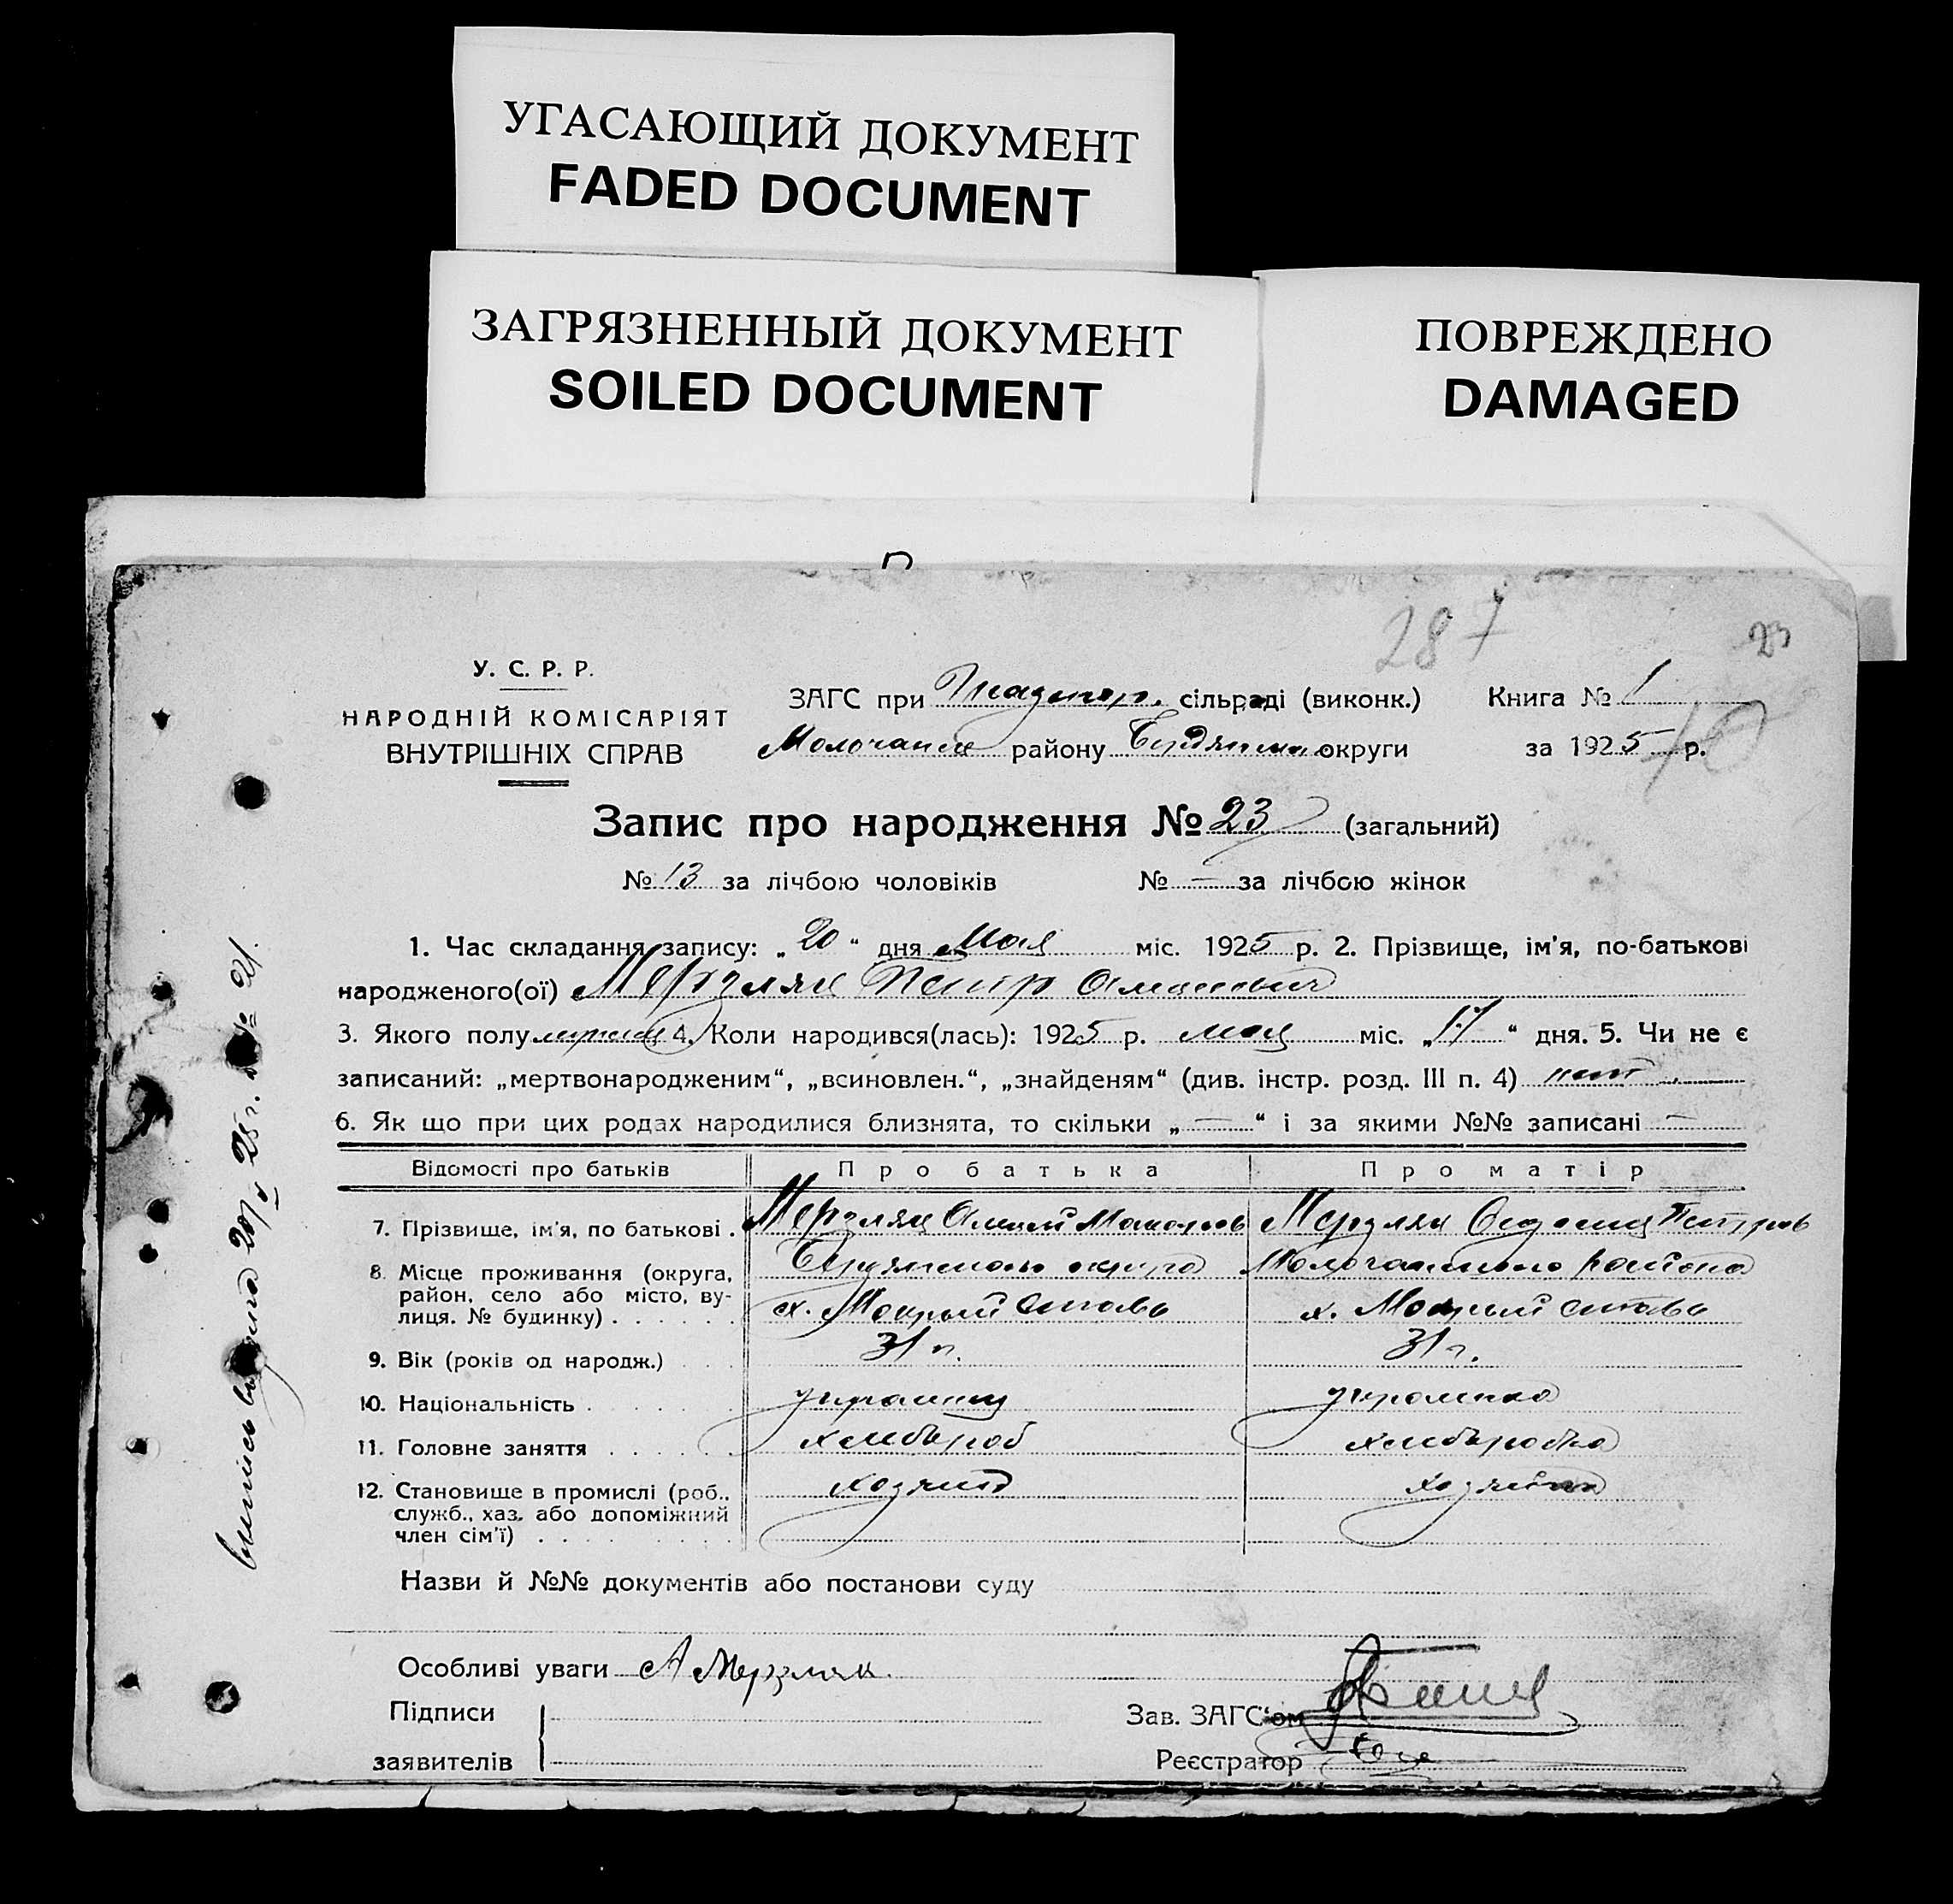 УГАСАЮЩИЙ ДОКУМЕНТ
FADED DOCUMENT
ЗАГРЯЗНЕННЫЙ ДОКУМЕНТ
SOILED DOCUMENT
ПОВРЕЖДЕНО
DAMAGED
287
23
У. С. Р. Р.
НАРОДНІЙ КОМІСАРІЯТ
ВНУТРІШНІХ СПРАВ
ЗАГС при сільраді (виконк.) Книга № 1
району округи за 1925 р.
Запис про народження № 23 (загальний)
№ 13 за лічбою чоловіків № — за лічбою жінок
1. Час складання запису: „ 20 “ дня Мая міс. 1925 р. 2. Прізвище, ім'я, по-батькові
народженого(ої) Мерзляк Петр
3. Якого полу 4. Коли народився(лась): 1925 р. мая міс. „ 17 “ дня. 5. Чи не є
записаний: „мертвонародженим“, „всиновлен.“, „знайденям“ (див. інстр. розд. III п. 4) нет
6. Як що при цих родах народилися близнята, то скільки „ — “ і за якими №№ записані —
Відомості про батьків Про батька Про матір
7. Прізвище, ім'я, по батькові . Мерзляк Мерзляк Петров
8. Місце проживання (округа, округа района
район, село або місто, ву- х. Мокрый х. Мокрый
лиця. № будинку) . . . . . .
9. Вік (років од народж.) . . . 31 г. 31 г.
10. Національність . . . . . . украинец украинка
11. Головне заняття . . . . . хлебороб хлеборобка
12. Становище в промислі (роб., хозяин хозяйка
служб., хаз. або допоміжний
член сім'ї) . . . . . . . .
Назви й №№ документів або постанови суду
Особливі уваги А Мерзляк
Підписи Зав. ЗАГС'ом
заявителів Реєстратор